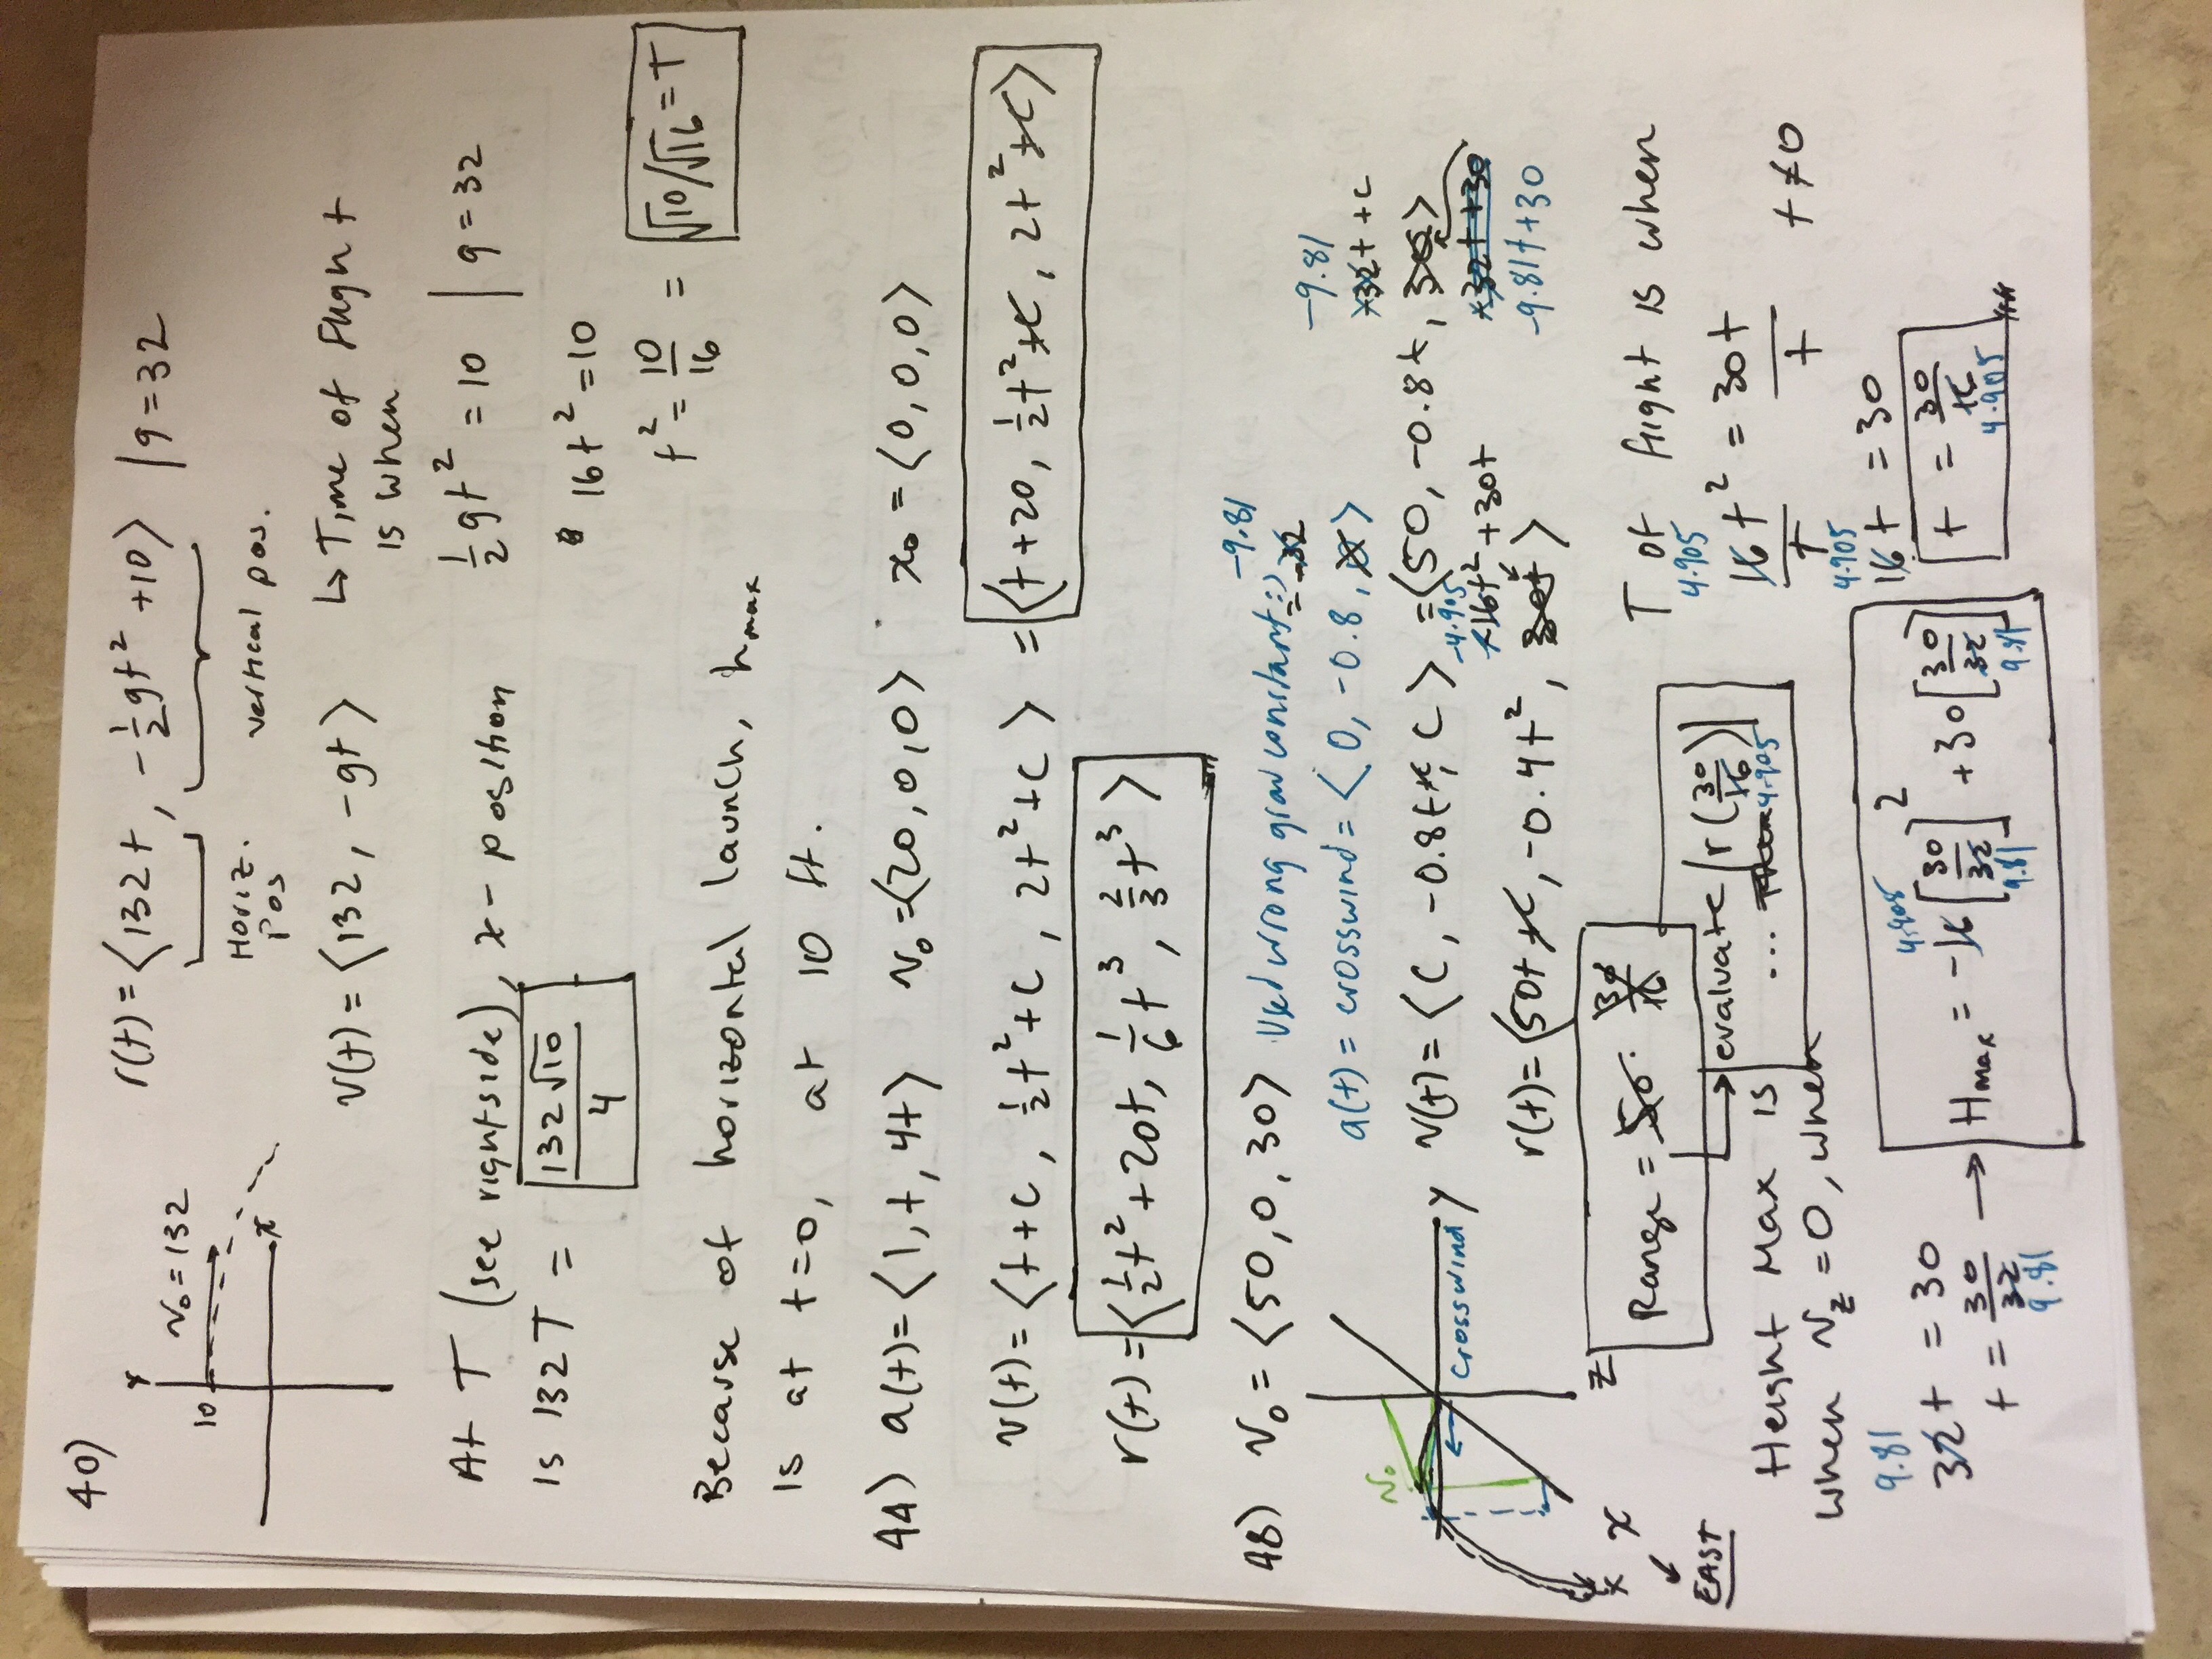 40)
r(t) = ⟨132t, -½gt² +10⟩ | g=32
Y
v₀ = 132
10
x
Horiz. Pos
vertical pos.
v(t) = ⟨132, -gt⟩
↳ Time of flight
is when
½gt² = 10 | g=32
16t² = 10
t² = 10/16 = √10/√16 = T
At T (see rightside), x-position
is 132T = 132√10/4
Because of horizontal launch, hmax
is at t=0, at 10 ft.
44) a(t)= ⟨1, t, 4t⟩ v₀=⟨20,0,0⟩ x₀ = ⟨0,0,0⟩
v(t)= ⟨t+c, ½t²+c, 2t²+c⟩ = ⟨t+20, ½t²+c, 2t²+c⟩
r(t) = ⟨½t²+20t, 1/6 t³, 2/3 t³⟩
48) v₀ = ⟨50,0,30⟩ Used wrong grav constant :) -9.81
= -32
a(t) = crosswind = ⟨0, -0.8, 0⟩
-9.81
-32t+c
v(t) = ⟨c, -0.8t+c, c⟩ = ⟨50, -0.8t, 30⟩
-32t+30
-9.81t+30
-4.905
-16t²+30t
r(t) = ⟨50t+c, -0.4t², 30t⟩
v₀
crosswind
y
z
x
x
EAST
Range = 50 · 30/16
evaluate |r(30/16)|
... 4.905
T of flight is when
4.905
16t²/t = 30t/t t≠0
4.905
16t = 30
t = 30/16
4.905
Height Max is
when v_z = 0, when
9.81
32t = 30
t = 30/32
9.81
→ Hmax = -16[30/32]² + 30[30/32]
4.905
9.81
9.81